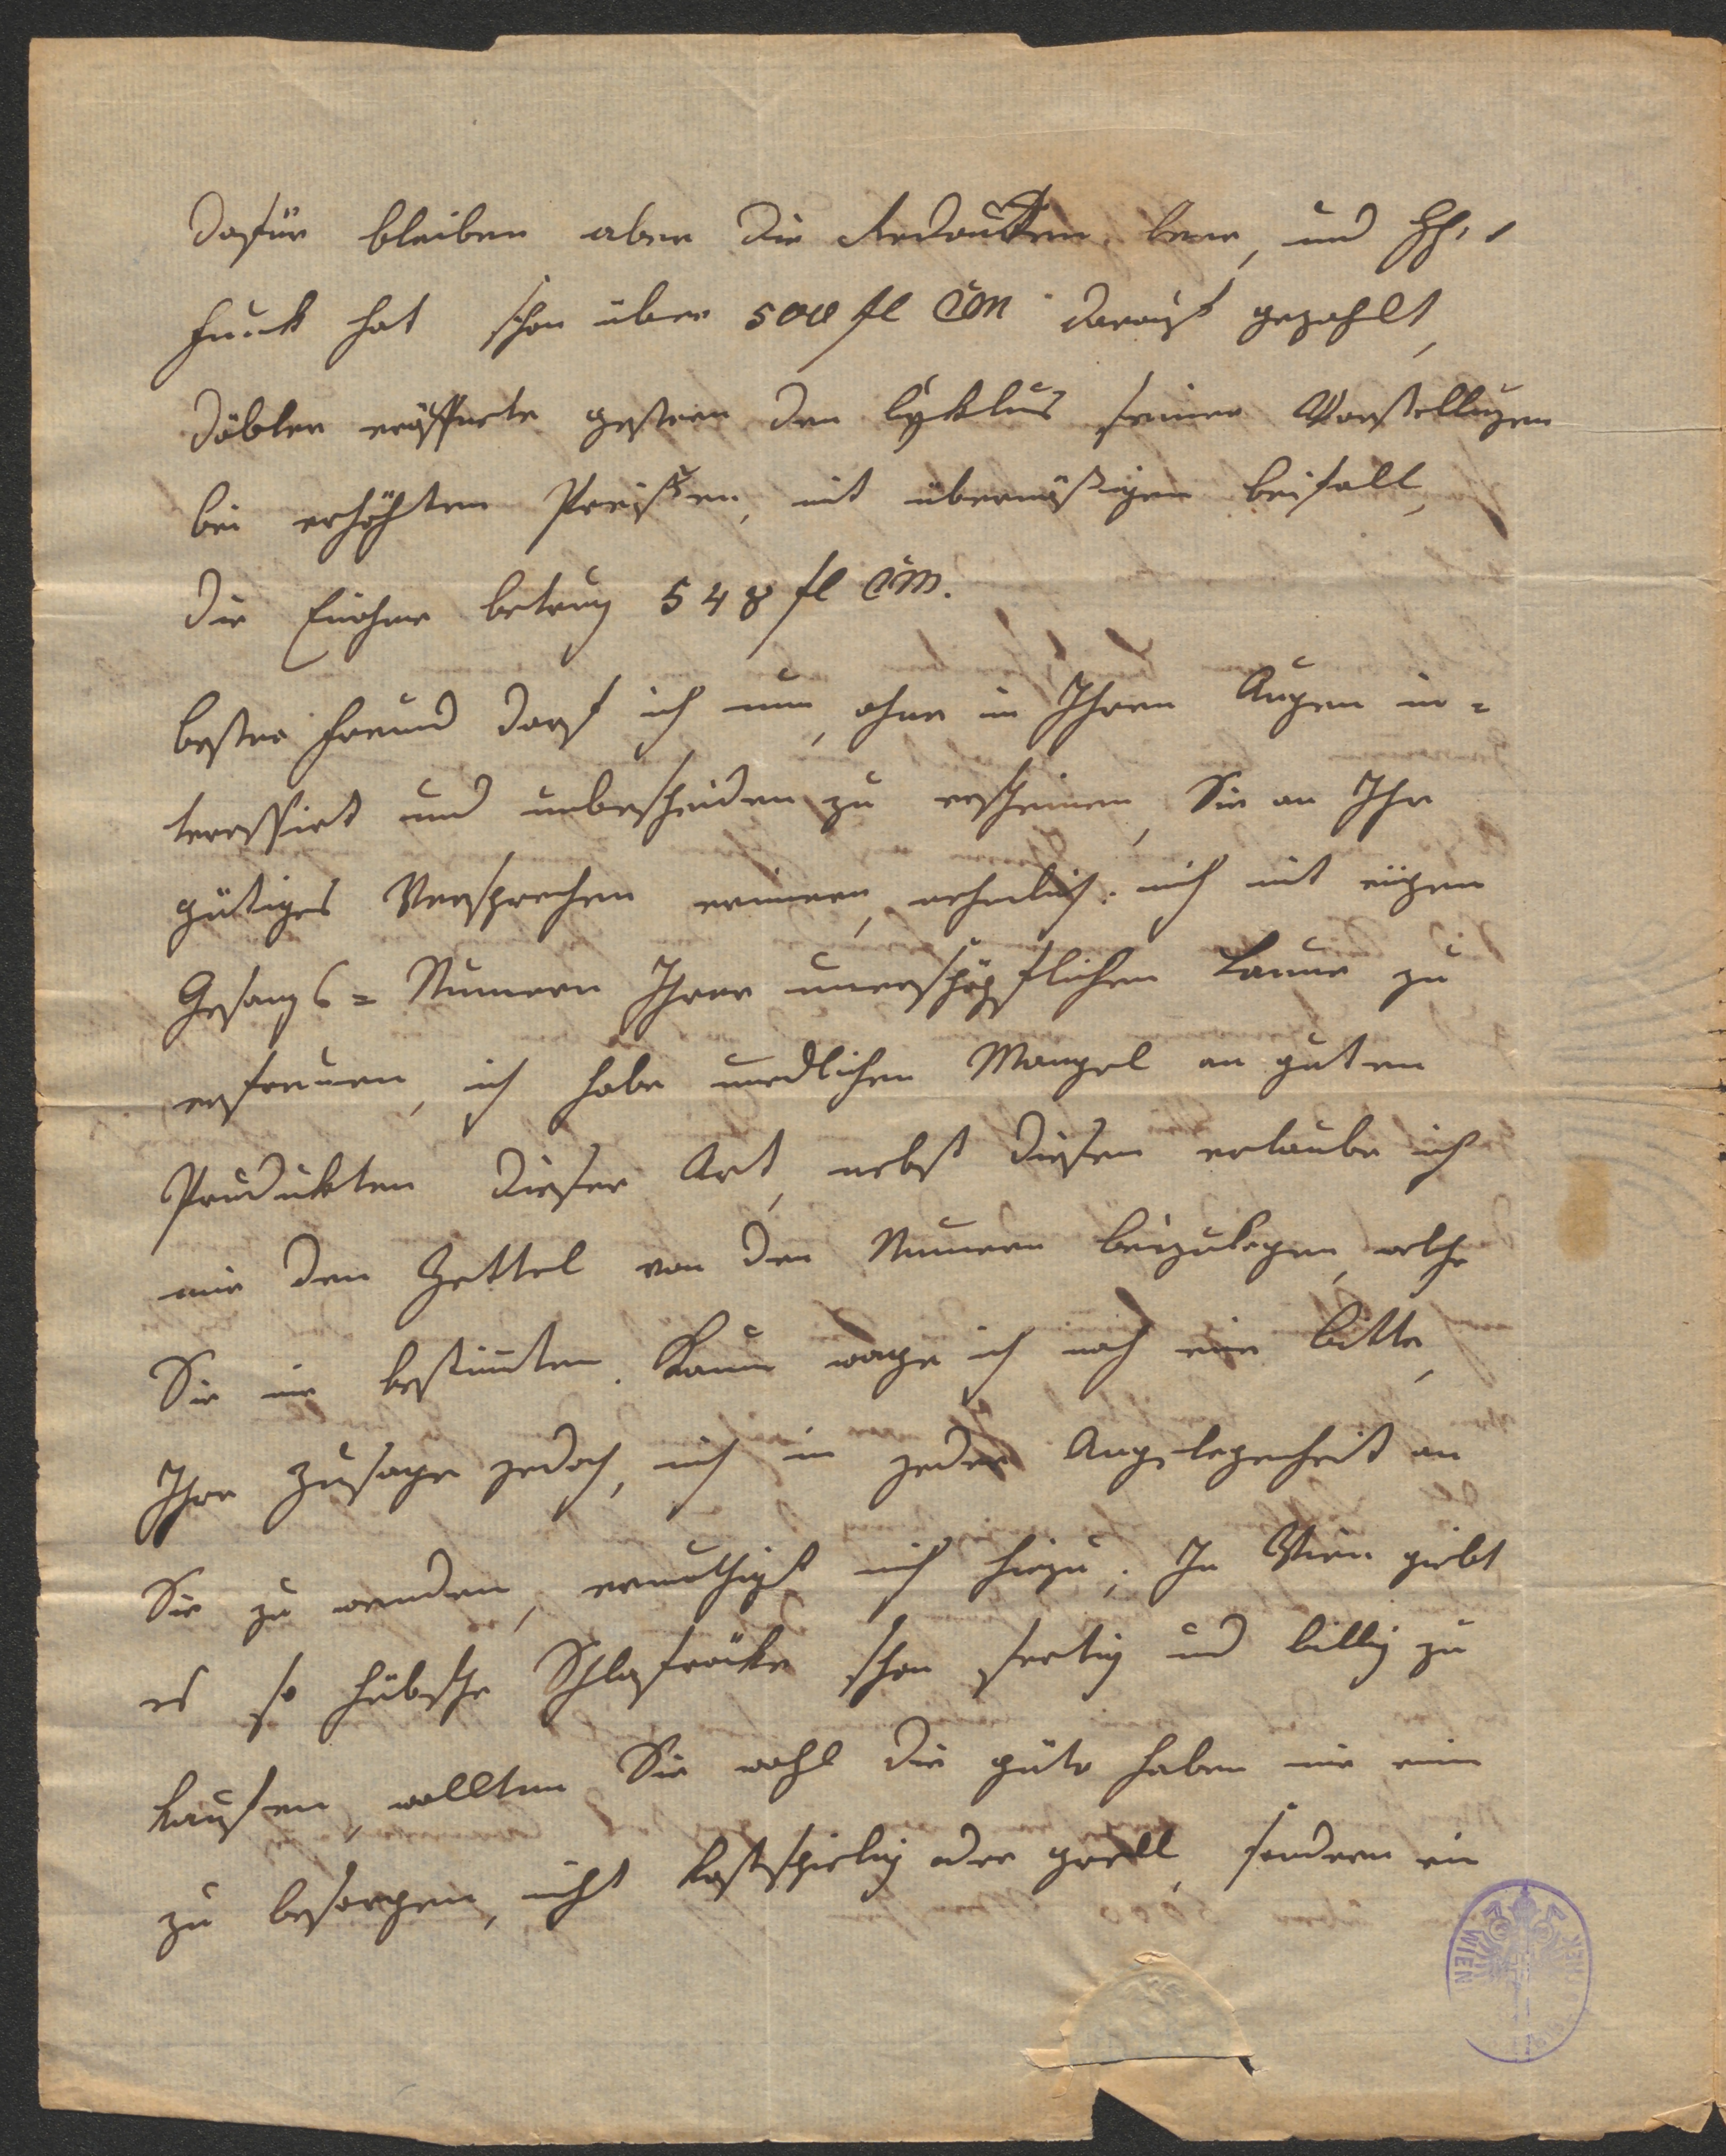 dafür bleiben aber die Redoutten leer, und H.
Funk hat schon über 500 fl CM darauf gezahlt,
Döbler eröffnete gestern den Cyklus seiner Vorstellungen
bei erhöhten Preißen, mit übermäßigen Beifall,
die Einahme betrug 548 fl CM.
bester Freund darf ich nun, ohne in Ihren Augen in=
teressirt und unbescheiden zu erscheinen, Sie an Ihr
gütiges Versprechen erinnern, nehmlich mich mit einigen
Gesangs=Numern Ihrer unerschöpflichen Laune zu
erfreuen, ich habe unendlichen Mangel an guten
Produkten dieser Art, nebst diesen erlaube ich
mir den Zettel von den Numern beizulegen, welche
Sie mir bestimten. Kaum wage ich noch eine bitte,
Ihre Zusage jedoch, mich in jeder Angelegenheit an
Sie zu wenden, ermuthigt mich hiezu; In Wien giebt
es so hübsche Schlafröcke schon fertig und billig zu
kaufen, wollten Sie wohl die güte haben mir einen
zu besorgen, nicht kostspielig oder grell, sondern ein
WIEN